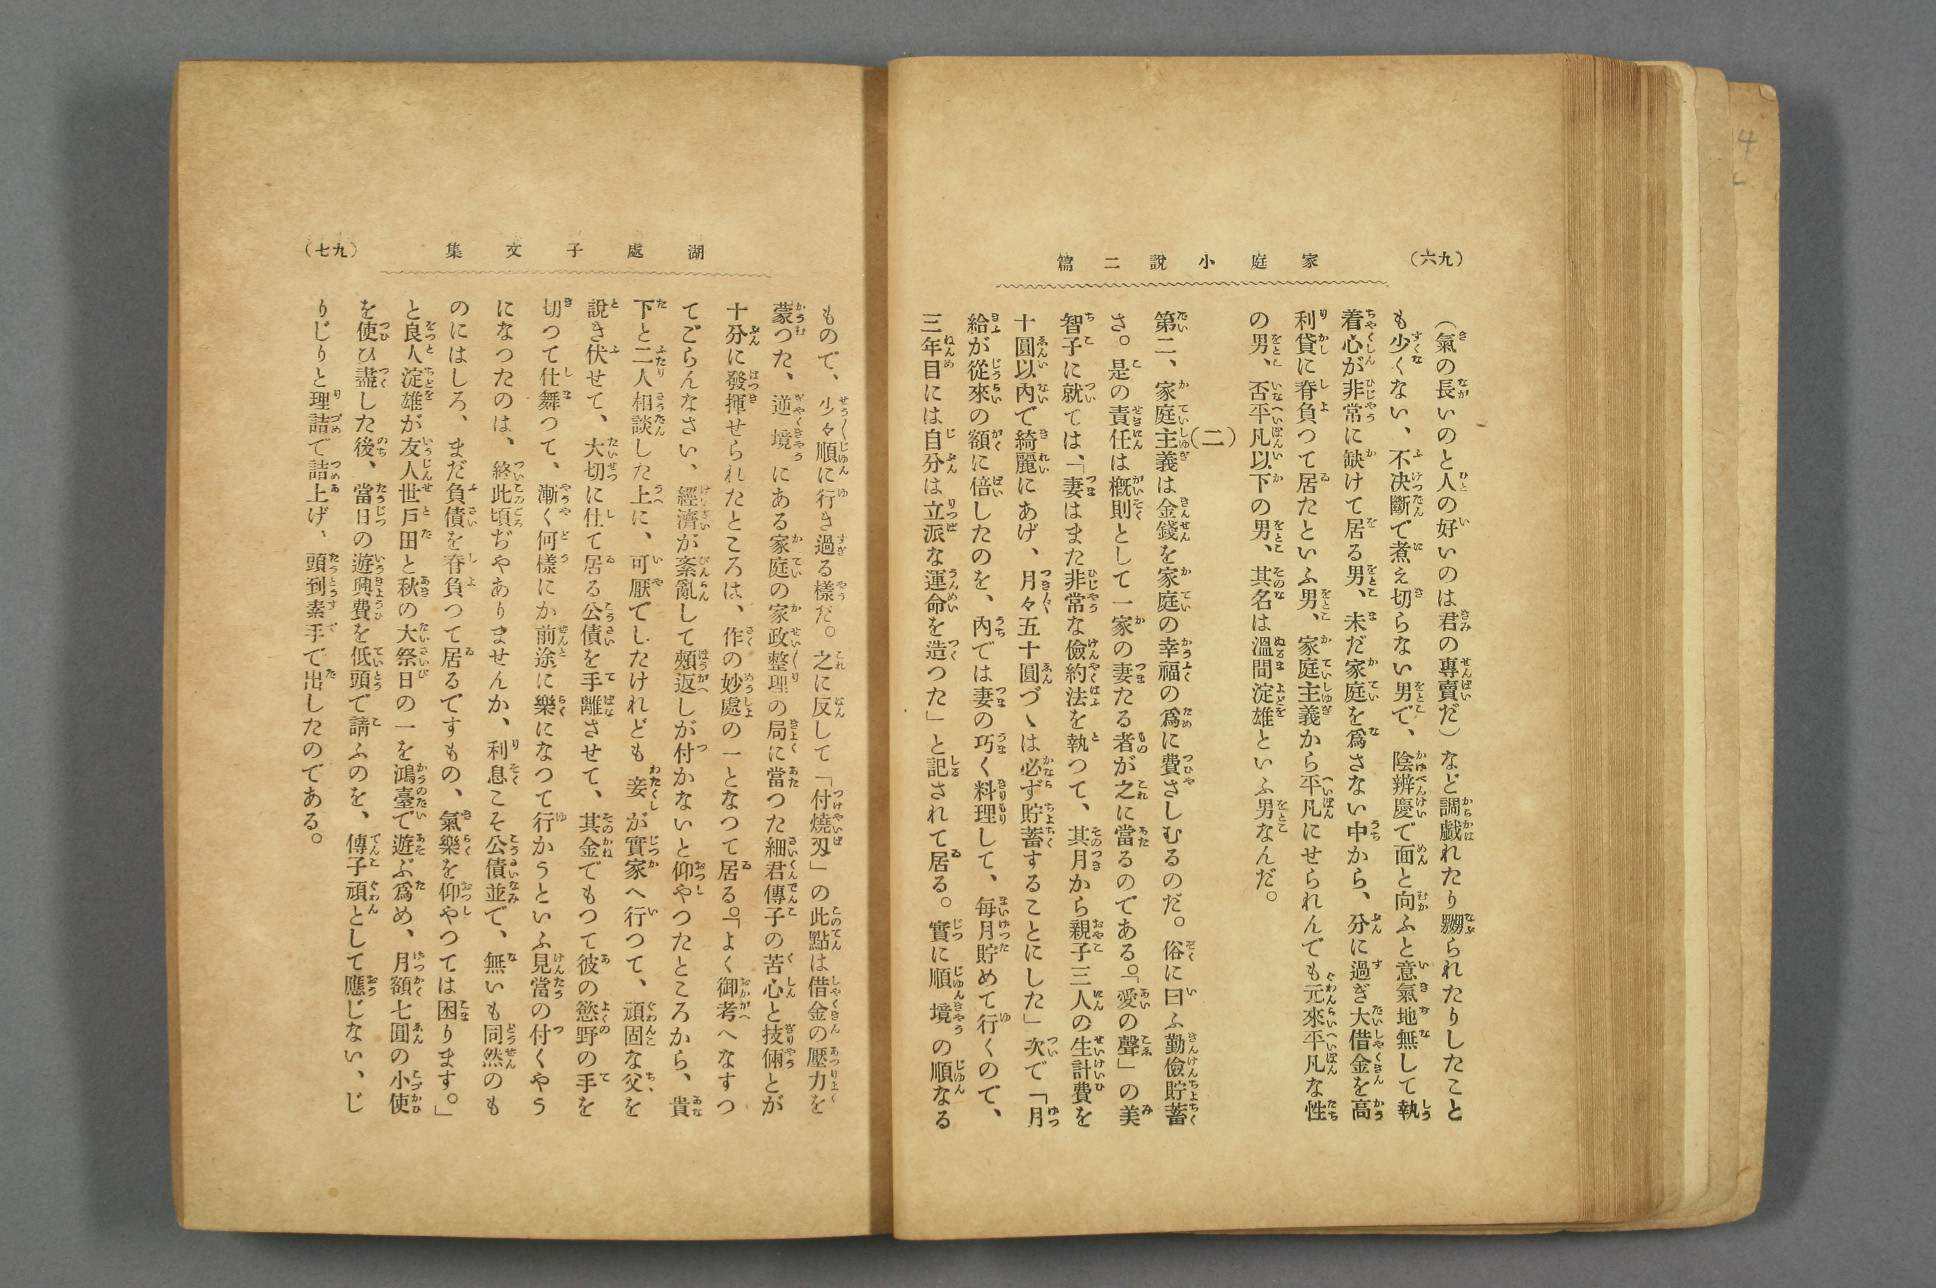 (九六)
家庭小說二篇
(氣の長いのと人の好いのは君の專賣だ)など調戯れたり嬲られたりしたこと
も少くない、不决斷で煮え切らない男で、陰辨慶で面と向ふと意氣地無して執
着心が非常に缺けて居る男、未だ家庭を爲さない中から、分に過ぎ大借金を高
利貸に脊負つて居たといふ男、家庭主義から平凡にせられんでも元來平凡な性
の男、否平凡以下の男、其名は溫間淀雄といふ男なんだ。
(二)
第二、家庭主義は金錢を家庭の幸福の爲に費さしむるのだ。俗に曰ふ勤儉貯蓄
さ。是の責任は概則として一家の妻たる者が之に當るのである。「愛の聲」の美
智子に就ては、「妻はまた非常な儉約法を執つて、其月から親子三人の生計費を
十圓以內で綺麗にあげ、月々五十圓づゝは必ず貯蓄することにした」次で「月
給が從來の額に倍したのを、內では妻の巧く料理して、每月貯めて行くので、
三年目には自分は立派な運命を造つた」と記されて居る。實に順境の順なる
湖處子文集
(九七)
もので、少々順に行き過る樣だ。之に反して「付燒刄」の此點は借金の壓力を
蒙つた、逆境にある家庭の家政整理の局に當つた細君傳子の苦心と技倆とが
十分に發揮せられたところは、作の妙處の一となつて居る。「よく御考へなすつ
てごらんなさい、經濟が紊亂して頰返しが付かないと仰やつたところから、貴
下と二人相談した上に、可厭でしたけれども妾が實家へ行つて、頑固な父を
說き伏せて、大切に仕て居る公債を手離させて、其金でもつて彼の慾野の手を
切つて仕舞つて、漸く何樣にか前途に樂になつて行かうといふ見當の付くやう
になつたのは、終此頃ぢやありませんか、利息こそ公債並で、無いも同然のも
のにはしろ、まだ負債を脊負つて居るですもの、氣樂を仰やつては困ります。」
と良人淀雄が友人世戸田と秋の大祭日の一を鴻臺で遊ぶ爲め、月額七圓の小使
を使ひ盡した後、當日の遊興費を低頭で請ふのを、傳子頑として應じない、じ
りじりと理詰で詰上げ、頭到素手で出したのである。